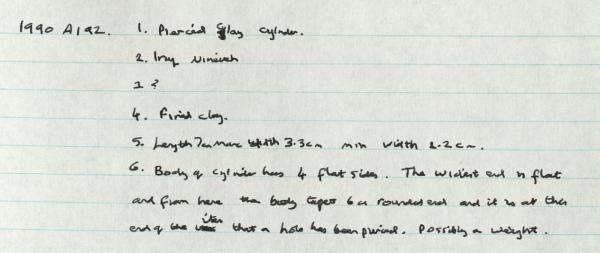 1990 A192. 1. Pierced Clay cylinder.
2. Iraq Nineveh
3 ?
4. Fired clay.
5. Length 7cm max width 3.3cm min width 2.2cm.
6. Body of cylinder has 4 flat sides. The widest end is flat
and from here the body tapers to a rounded end and it is at this
end of the item that a hole has been pierced. Possibly a weight.